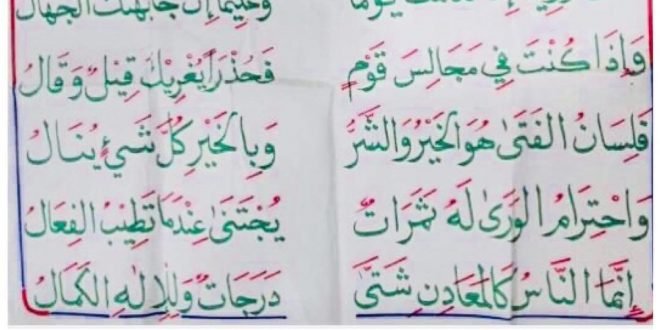 يوما وحليما إن جابهتك الجهال
وَإِذَا كُنْتَ فِي مَجَالِسَ قَوْمٍ فَحُذْرَاً يُغْرِيكَ قِيْلٌ وَقَالُ
فَلِسَانُ الفَتَىٰ هُوَ الخَيْرُ وَالشَّرُّ وَبِالخَيْرِ كُلُّ شَيْءٍ يُنَالُ
وَاحْتِرَامُ الوَرَىٰ لَهُ ثَمَرَاتٌ يُجْتَنَىٰ عِنْدَمَا تَطِيْبُ الفِعَالُ
إِنَّمَا النَّاسُ كَالمَعَادِنِ شَتَّىٰ دَرَجَاتٌ وَلِلإِلٰهِ الكَمَالُ